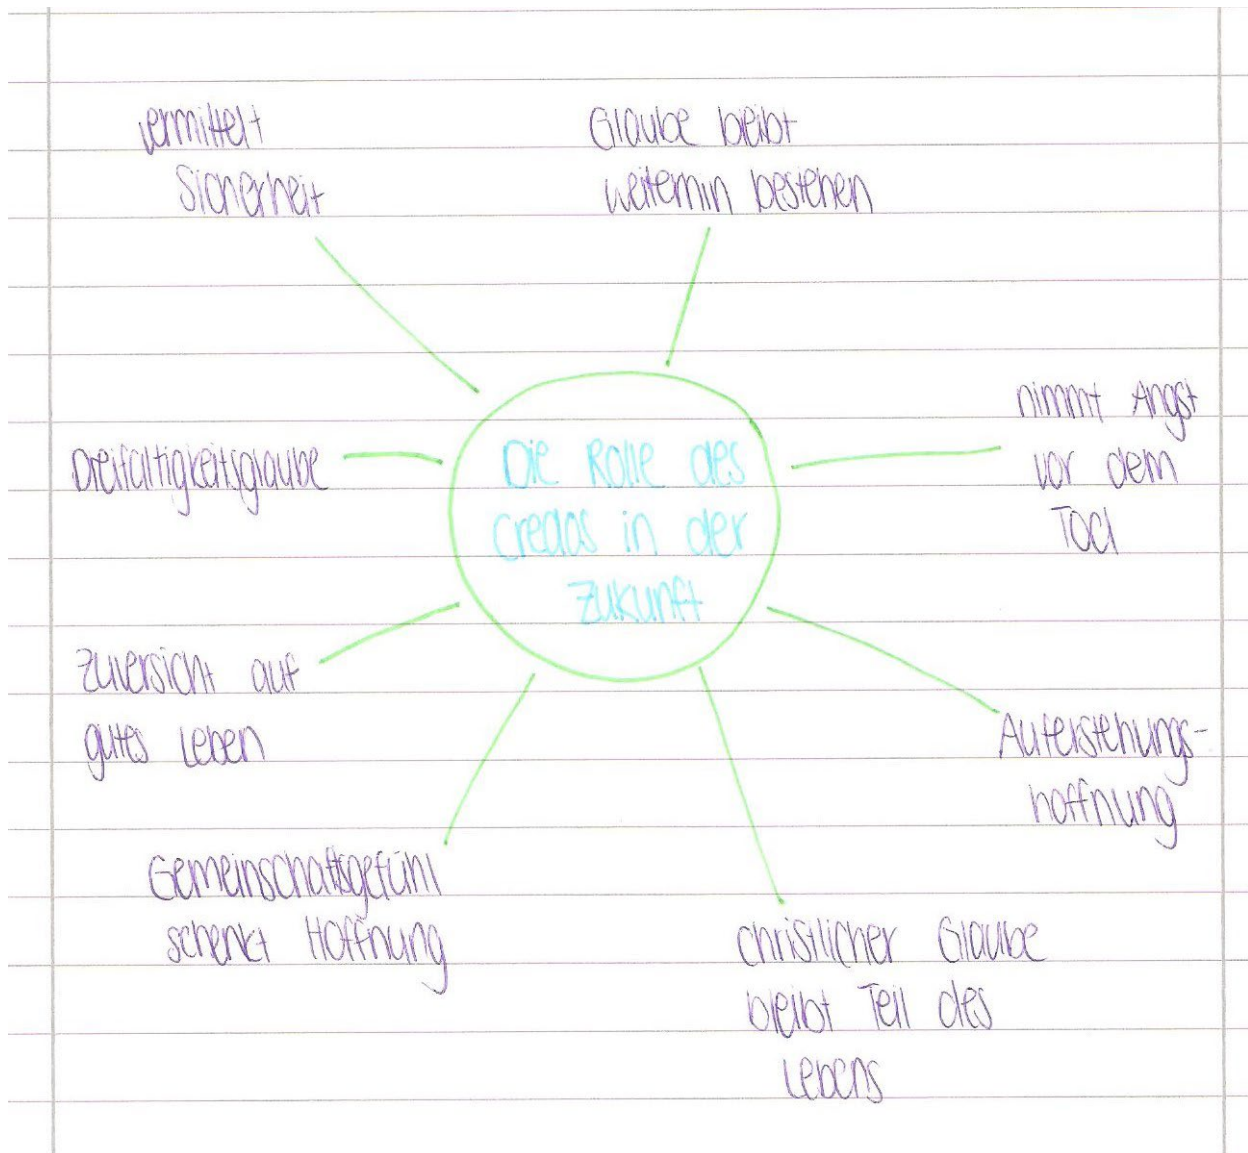 vermittelt
Sicherheit
Glaube bleibt
weiterhin bestehen
nimmt Angst
vor dem
Tod
Dreifaltigkeitsglaube
Die Rolle des
Credos in der
Zukunft
Zuversicht auf
gutes Leben
Auferstehungs-
hoffnung
Gemeinschaftsgefühl
schenkt Hoffnung
christlicher Glaube
bleibt Teil des
Lebens